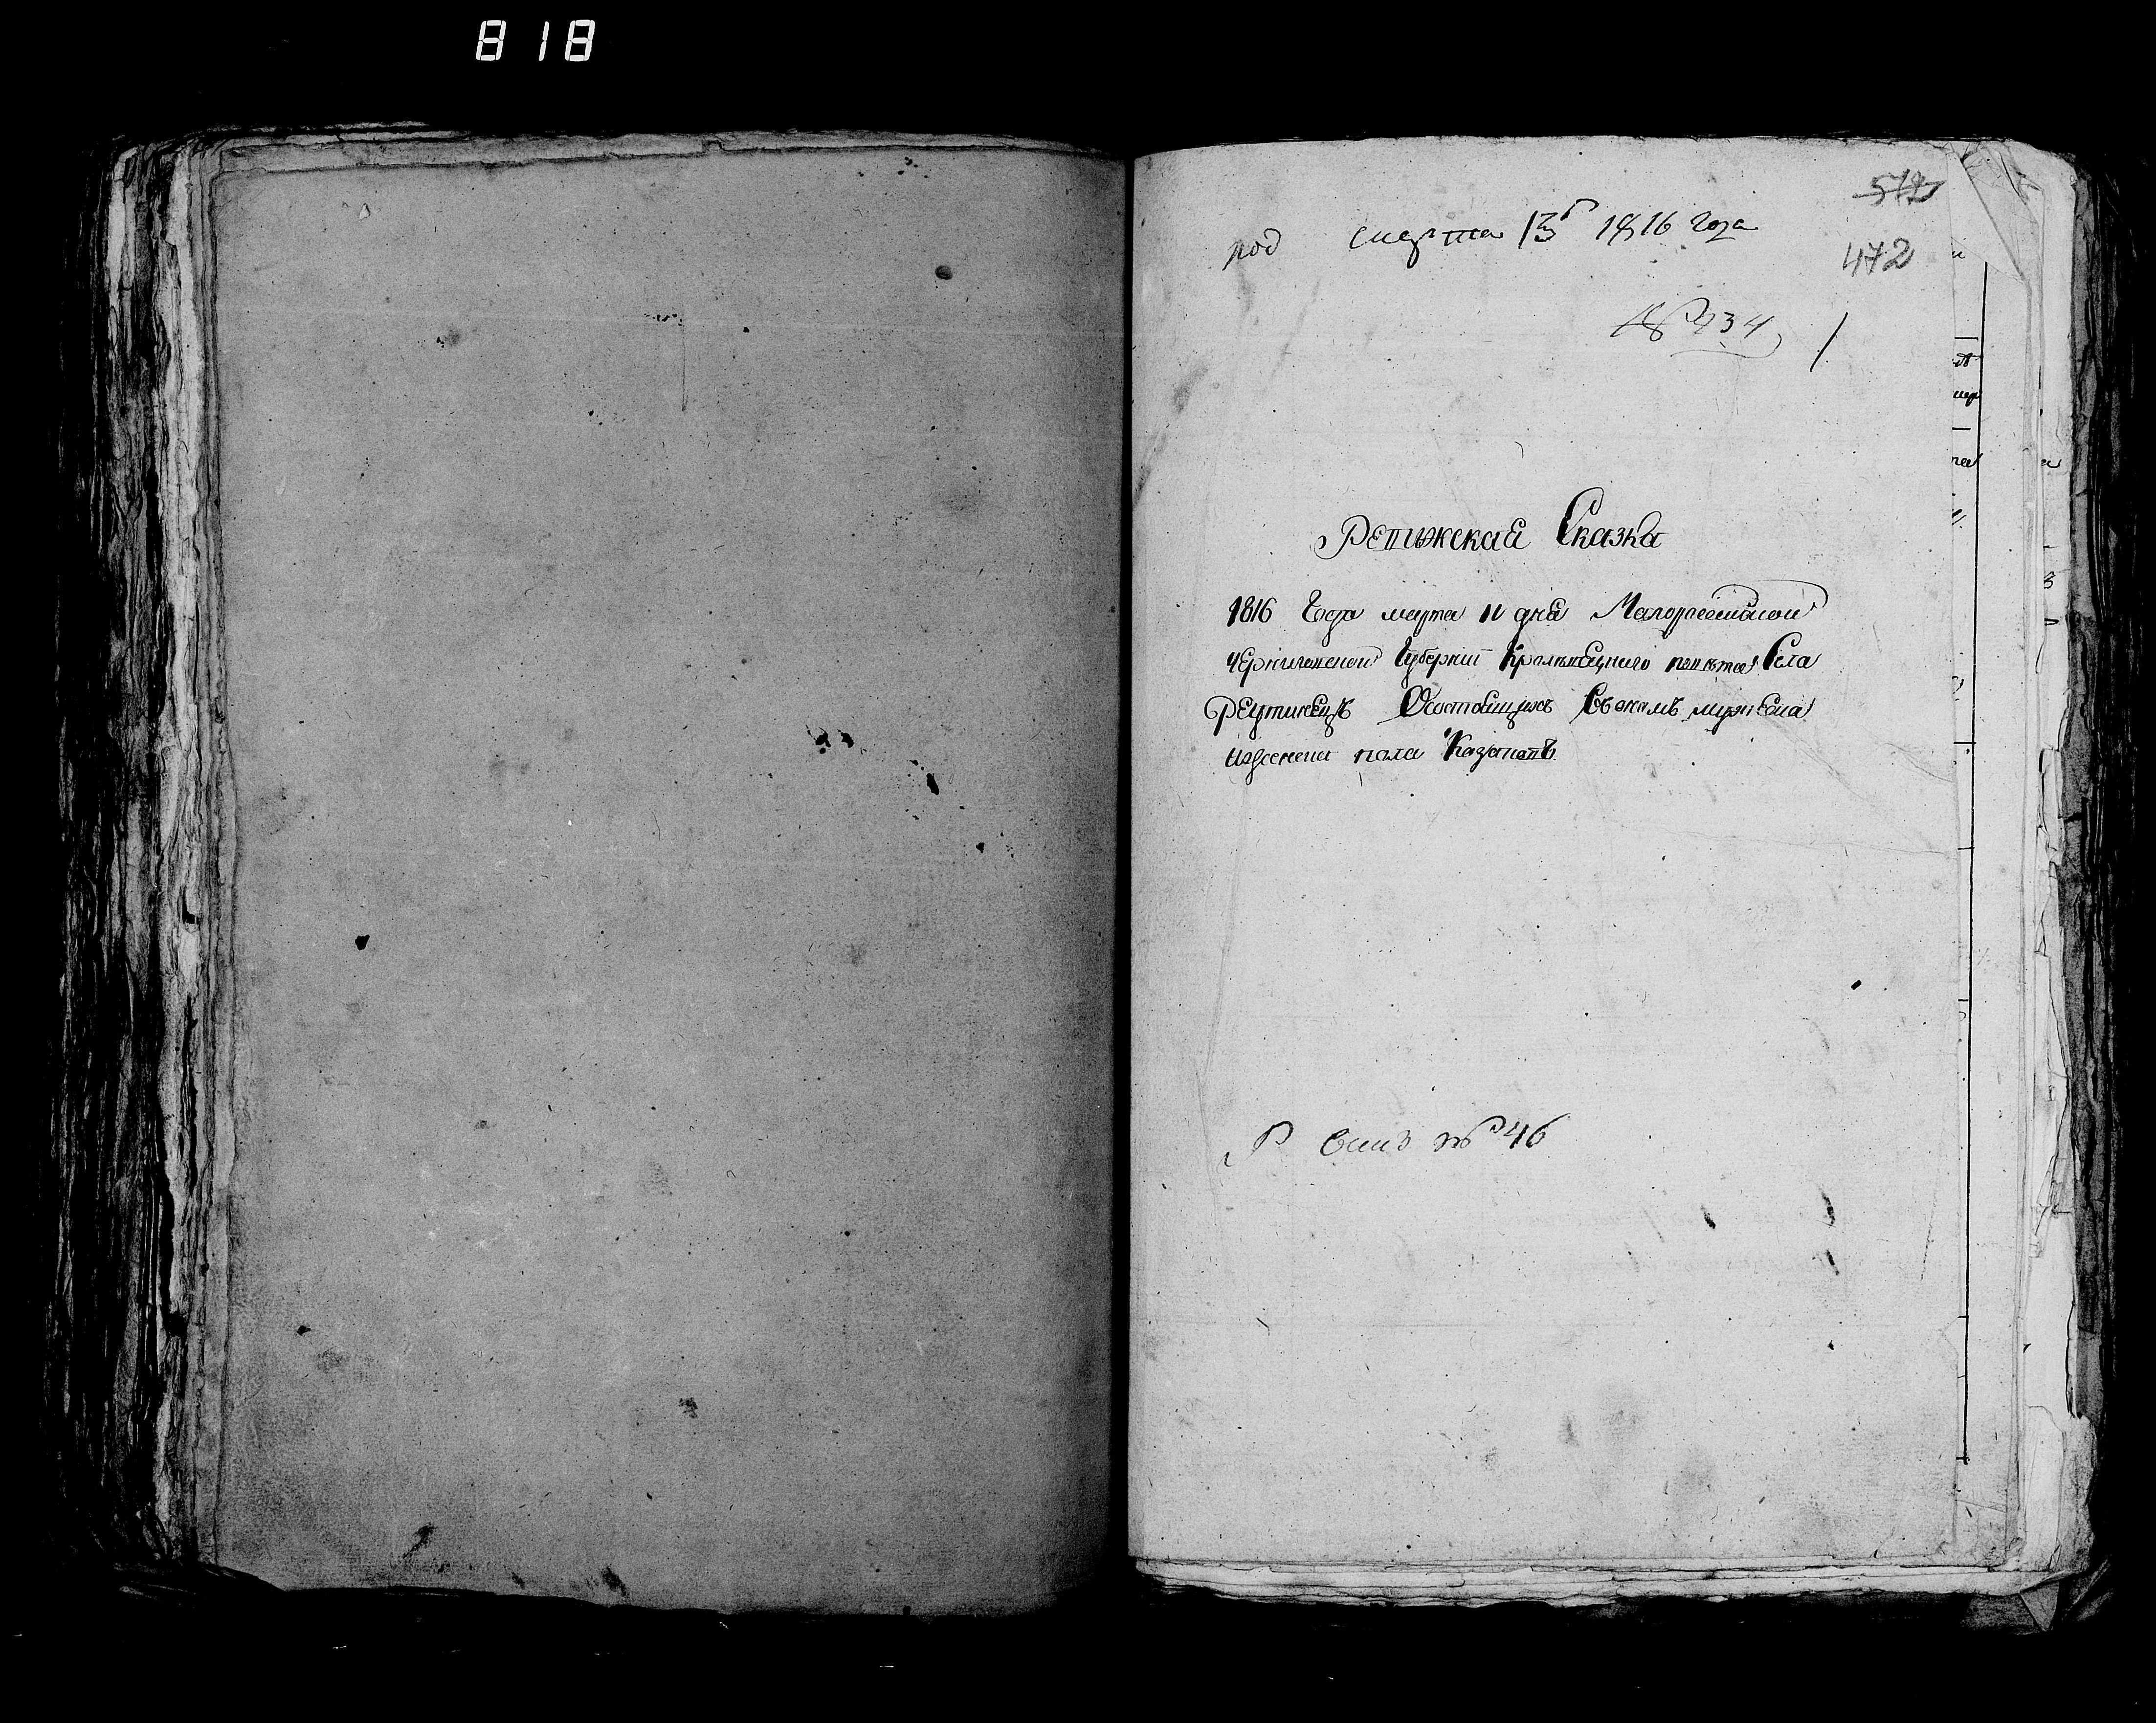 818
572
под марта 13 1816 года
472
№ 434
Ревижская Сказка
1816 года марта 11 дня Малороссийской
черниговской Губернии Кролевецкого повета Села
Реутинецъ Осостоящихъ мужеска
иженска пола Казакахъ
№ 46